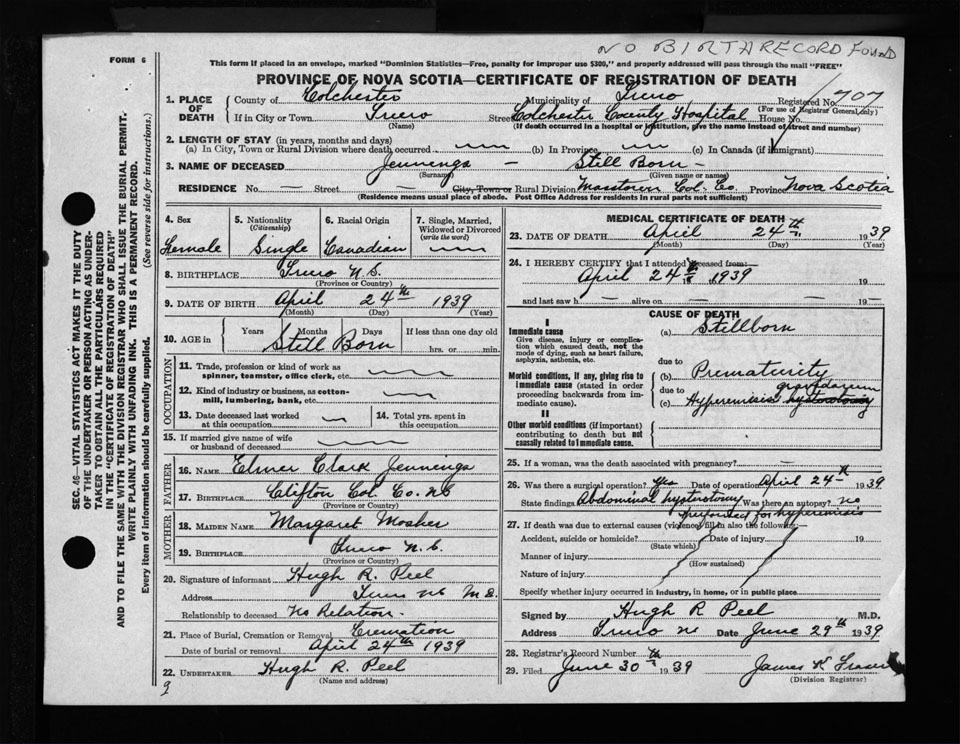 NO BIRTH RECORD FOUND
FORM 6
This form if placed in an envelope, marked "Dominion Statistics—Free, penalty for improper use $300," and properly addressed will pass through the mail "FREE"
PROVINCE OF NOVA SCOTIA—CERTIFICATE OF REGISTRATION OF DEATH
1. PLACE OF DEATH County of Colchester Municipality of Truro Registered No. 707
(For use of Registrar General only)
If in City or Town Truro Street Colchester County Hospital House No.
(Name) (If death occurred in a hospital or institution, give the name instead of street and number)
2. LENGTH OF STAY (in years, months and days)
(a) In City, Town or Rural Division where death occurred (b) In Province (c) In Canada (if immigrant)
3. NAME OF DECEASED Jennings — Still Born —
(Surname) (Given name or names)
RESIDENCE No. — Street — City, Town or Rural Division Masstown Col. Co. Province Nova Scotia
(Residence means usual place of abode. Post Office Address for residents in rural parts not sufficient)
SEC. 46—VITAL STATISTICS ACT MAKES IT THE DUTY
OF THE UNDERTAKER OR PERSON ACTING AS UNDER-
TAKER TO OBTAIN ALL THE PARTICULARS REQUIRED
IN THE "CERTIFICATE OF REGISTRATION OF DEATH"
AND TO FILE THE SAME WITH THE DIVISION REGISTRAR WHO SHALL ISSUE THE BURIAL PERMIT.
WRITE PLAINLY WITH UNFADING INK. THIS IS A PERMANENT RECORD.
Every item of information should be carefully supplied. (See reverse side for instructions.)
4. Sex 5. Nationality (Citizenship) 6. Racial Origin 7. Single, Married, Widowed or Divorced (write the word)
Female Single Canadian
8. BIRTHPLACE Truro N.S.
(Province or Country)
9. DATE OF BIRTH April 24th 1939
(Month) (Day) (Year)
10. AGE in Years Months Days If less than one day old
Still Born hrs. or min.
OCCUPATION
11. Trade, profession or kind of work as
spinner, teamster, office clerk, etc.
12. Kind of industry or business, as cotton-
mill, lumbering, bank, etc.
13. Date deceased last worked at this occupation 14. Total yrs. spent in this occupation
15. If married give name of wife
or husband of deceased
FATHER
16. NAME Elmer Clark Jennings
17. BIRTHPLACE Clifton Col. Co. NS
(Province or Country)
MOTHER
18. MAIDEN NAME Margaret Mosher
19. BIRTHPLACE Truro N.S.
(Province or Country)
20. Signature of informant Hugh R. Peel
Address Truro NS M.D.
Relationship to deceased No Relation.
21. Place of Burial, Cremation or Removal Cremation
Date of burial or removal April 24th 1939
22. UNDERTAKER Hugh R. Peel
(Name and address)
MEDICAL CERTIFICATE OF DEATH
23. DATE OF DEATH April 24th 1939
(Month) (Day) (Year)
24. I HEREBY CERTIFY that I attended deceased from:—
April 24th 1939 19—
and last saw h — alive on — 19—
CAUSE OF DEATH
I
Immediate cause (a) Stillborn
Give disease, injury or complica-
tion which caused death, not the
mode of dying, such as heart failure,
asphyxia, asthenia, etc.
due to
Morbid conditions, if any, giving rise to (b) Prematurity
immediate cause (stated in order due to gravidarum
proceeding backwards from im- (c) Hyperemisis hysterotomy
mediate cause).
II
Other morbid conditions (if important)
contributing to death but not
causally related to Immediate cause
25. If a woman, was the death associated with pregnancy? —
26. Was there a surgical operation? Yes Date of operation April 24th 1939
State findings Abdominal hysterotomy Was there an autopsy? no
performed for hyperemisis
27. If death was due to external causes (violence) fill in also the following:—
Accident, suicide or homicide? Date of injury 19
(State which)
Manner of injury
(How sustained)
Nature of injury
Specify whether injury occurred in industry, in home, or in public place
Signed by Hugh R Peel M.D.
Address Truro NS Date June 29th 1939
28. Registrar's Record Number
29. Filed June 30th 1939 James K Fraser
(Division Registrar)